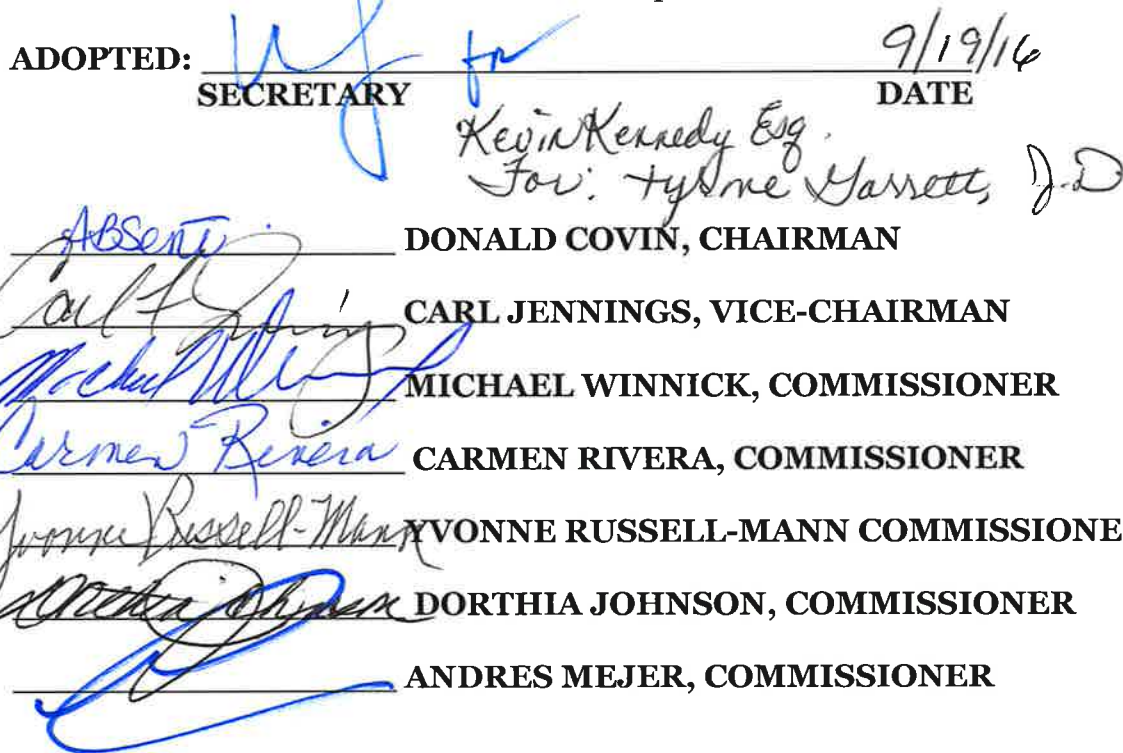 ADOPTED: for 9/19/16
SECRETARY DATE
Kevin Kennedy Esq.
For: Tyrone Garrett, J.D
ABSENT DONALD COVIN, CHAIRMAN
Carl F Jennings CARL JENNINGS, VICE-CHAIRMAN
Michael Winnick MICHAEL WINNICK, COMMISSIONER
Carmen Rivera CARMEN RIVERA, COMMISSIONER
Yvonne Russell-Mann YVONNE RUSSELL-MANN COMMISSIONE
Dorthia Johnson DORTHIA JOHNSON, COMMISSIONER
ANDRES MEJER, COMMISSIONER